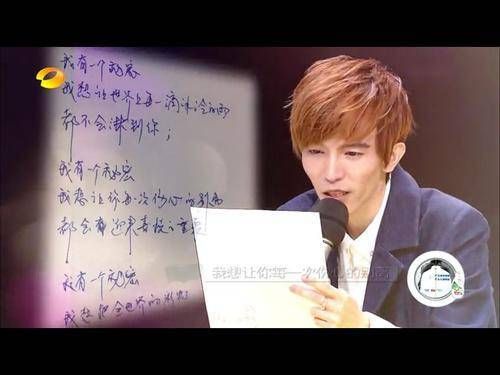 我有一个秘密
我想让世界上每一滴冰冷的雨
都不会淋到你；
我有一个秘密
我想让你每一次伤心的别离
都会有迎来
我有一个秘密
我想把全世界的
我想让你每一次伤心的别离